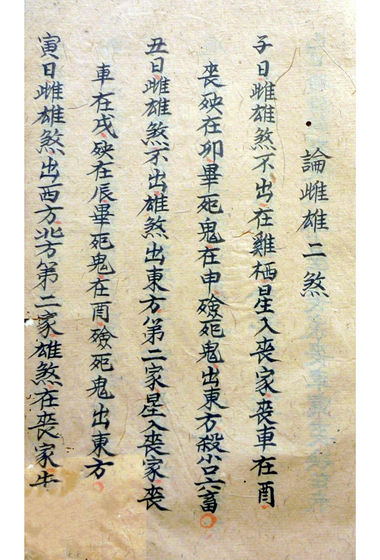 論雌雄二煞
子日雌雄煞不出在雞栖星入喪家喪車在酉
喪殃在卯畢死鬼在申殮死鬼出東方殺小口六畜
丑日雌雄煞不出雄煞出東方第二家星入喪家喪
車在戌殃在辰畢死鬼在酉殮死鬼出東方
寅日雌雄煞出西方北方第二家雄煞在喪家牛